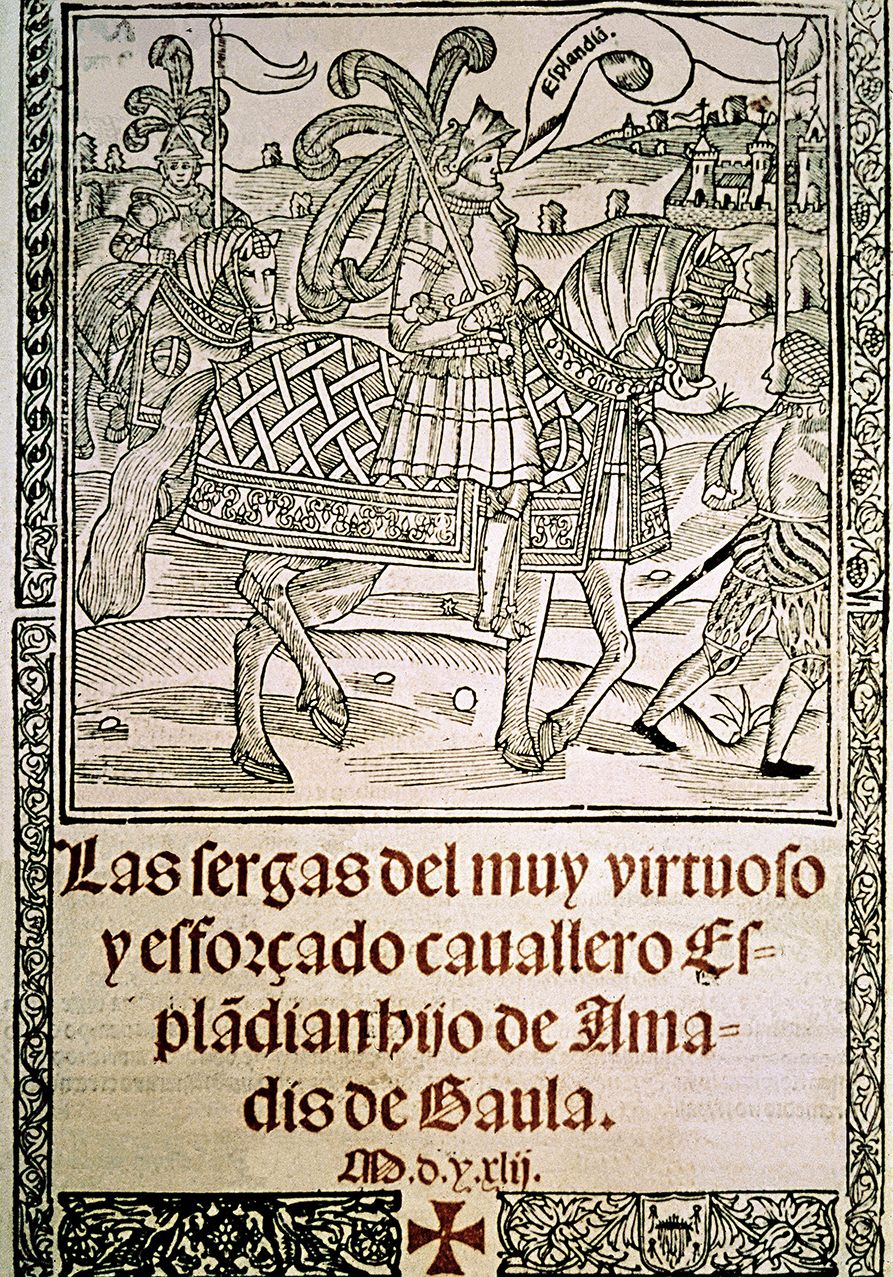 Esplandiã.
Las sergas del muy virtuoso
y esforçado cauallero Es=
plãdian hijo de Ama=
dis de Gaula.
M.d.y.xlij.